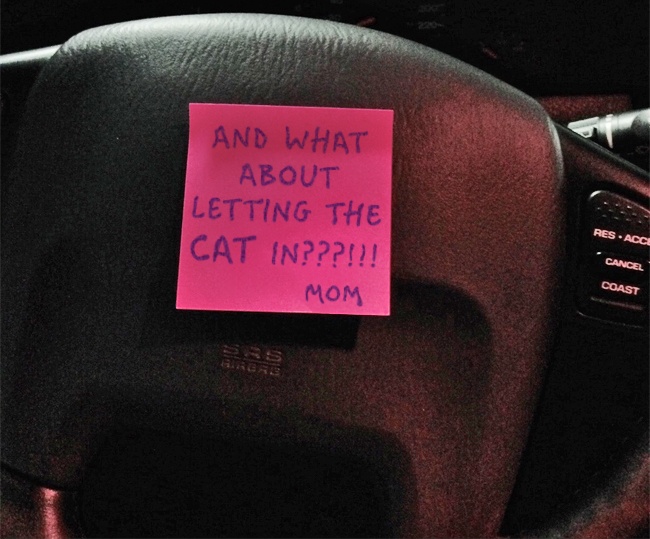 AND WHAT
ABOUT
LETTING THE
CAT IN???!!!
MOM
SRS
AIRBAG
RES • ACC
CANCEL
COAST
220